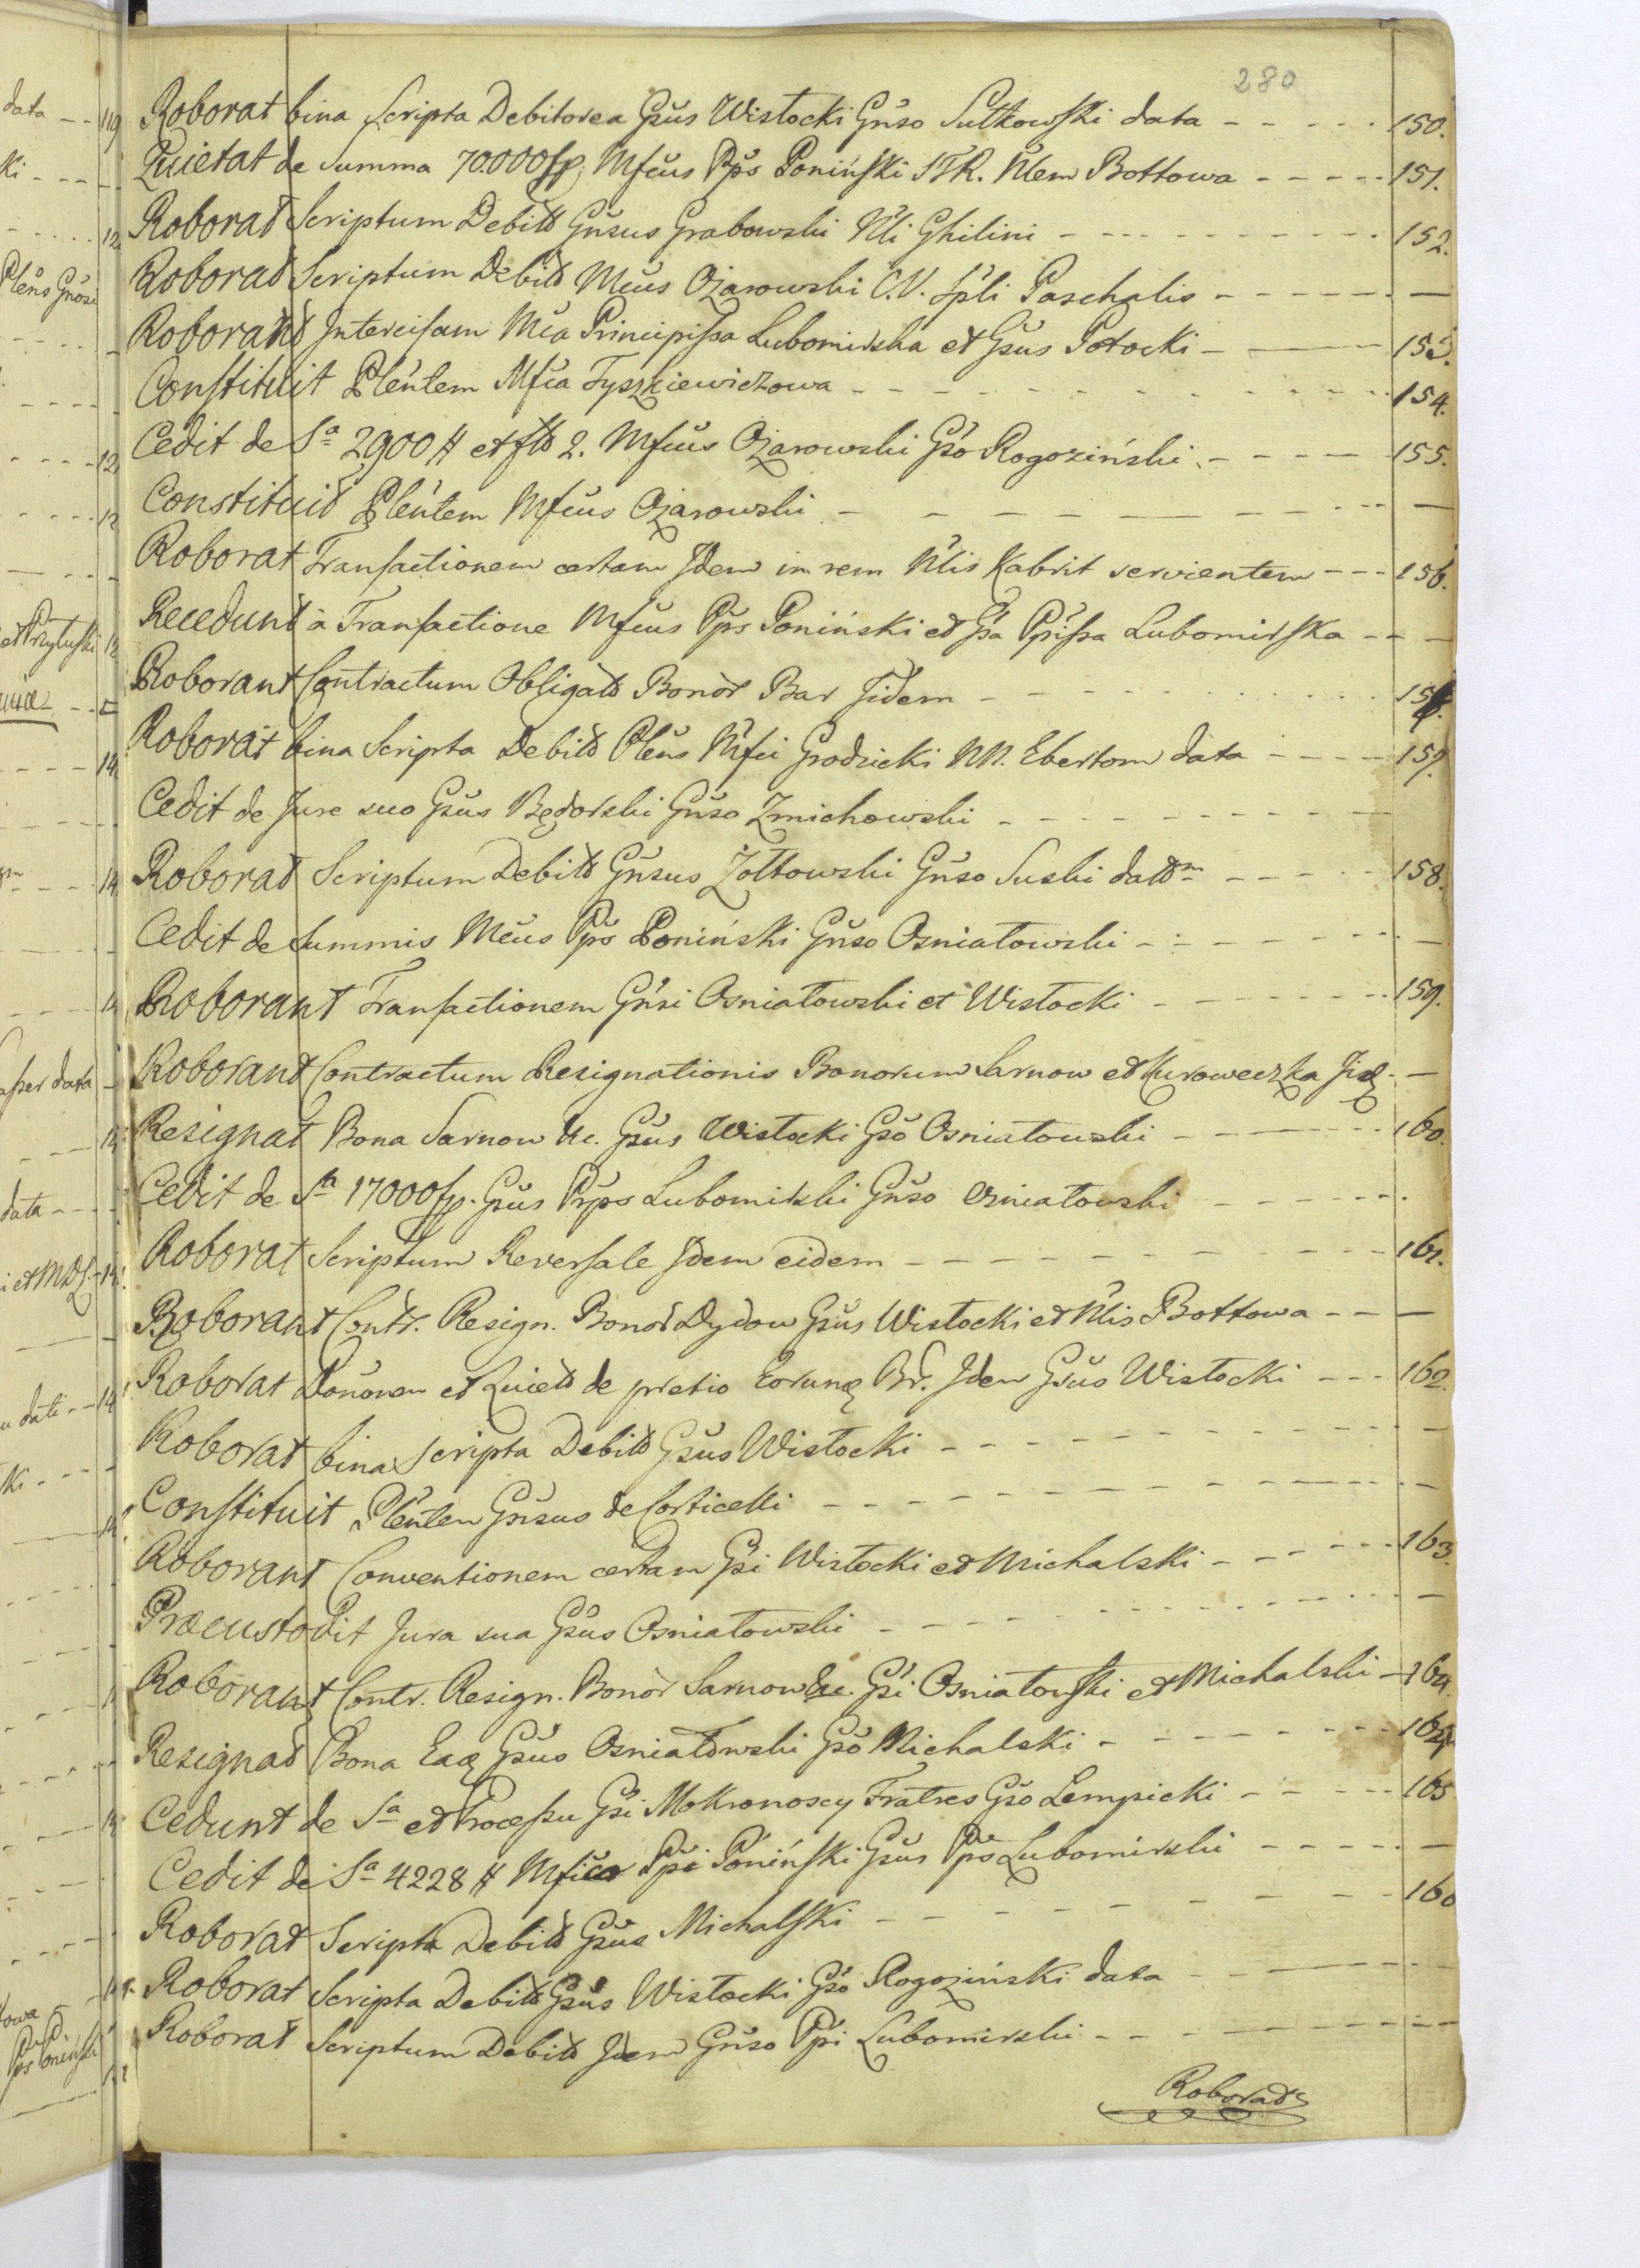 280
Roborat bina Scripta Debitorea Gsus Wisłocki Gnso Sułkowski data - - - - - 150.
Quietat de Summa 70.000 fp. Mfcus Pps Poniński STR. Nlem Bottowa - - - - - 151.
Roborat Scriptum Debitt Gnsus Grabowski Nli Ghilini - - - - - 152.
Roborat Scriptum Debitt Mcus Ożarowski C.V. Spli Paschalis - - - - - —
Roborant Intercisam Mca Principissa Lubomirska et Gsus Potocki - — 153.
Constituit Plentem Mfca Tyszkiewiczowa - - - - - 154.
Cedit de Sa 2900 # et fto 2. Mfcus Ożarowski Gso Rogoziński - - - - 155.
Constituit Plentem Mfcus Ożarowski - - - - - —
Roborat Transactionem certam Idem in rem Nlis Kabrit servientem - - - 156.
Recedunt à Transactione Mfcus Pps Poniński et Gsa Ppissa Lubomirska - - —
Roborant Contractum Obligatt Bonor Bar Iidem - - - - -
Roborat bina Scripta Debitt Plens Mfci Grodzicki NN. Ebertom data - - - - 157.
Cedit de Jure suo Gsus Będorski Gnso Zmichowski - - - - -
Roborat Scriptum Debitt Gnsus Żołtowski Gnso Suski dattm - - - - - 158.
Cedit de Summis Mcus Pps Poniński Gnso Osniałowski - - - - - —
Roborant Transactionem Gnsi Osniałowski et Wisłocki - - - - - 159.
Roborant Contractum Resignationis Bonorum Sarnow et Kuroweczka Iid. —
Resignat Bona Sarnow &c. Gsus Wisłocki Gso Osniałowski - - - - - 160.
Cedit de Sa 17000 fp. Gsus Pps Lubomirski Gnso Osniałowski - - - - -
Roborat Scriptum Reversale Idem eidem - - - - - 161.
Roborant Contr. Resign. Bonor Dydow Gsus Wisłocki et Nlis Bottowa - - —
Roborat Dononem et Quiett de pretio Eorund Br. Idem Gsus Wisłocki - - - 162.
Roborat bina Scripta Debitt Gsus Wisłocki - - - - - —
Constituit Plentem Gnsus de Corticelli - - - - - —
Roborant Conventionem certam Gsi Wisłocki et Michalski - - - - - 163.
Præcustodit Jura sua Gsus Osniałowski - - - - - —
Roborant Contr. Resign. Bonor Sarnow &c. Gsi Osniałowski et Michalski - 164.
Resignat Bona Ead Gsus Osniałowski Gso Michalski - - - - -
Cedunt de Sa et Processu Gsi Mokronoscy Fratres Gso Lempicki - - - - - 165
Cedit de Sa 4228 # Ppi Poniński Gsus Pps Lubomirski - - - - - —
Roborat Scripta Debitt Gsus Michalski - - - - - 166
Roborat Scripta Debitt Gsus Wisłocki Gso Rogoziński data - - - - - —
Roborat Scriptum Debitt Idem Gnso Ppi Lubomirski - - - - -
Roborat